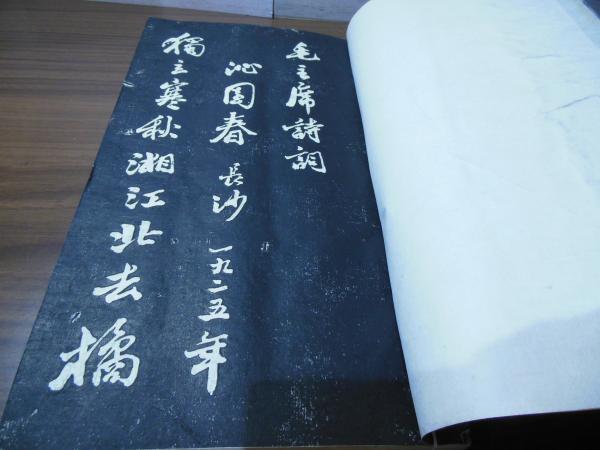 毛主席詩詞
沁園春 長沙 一九二五年
獨立寒秋湘江北去橘